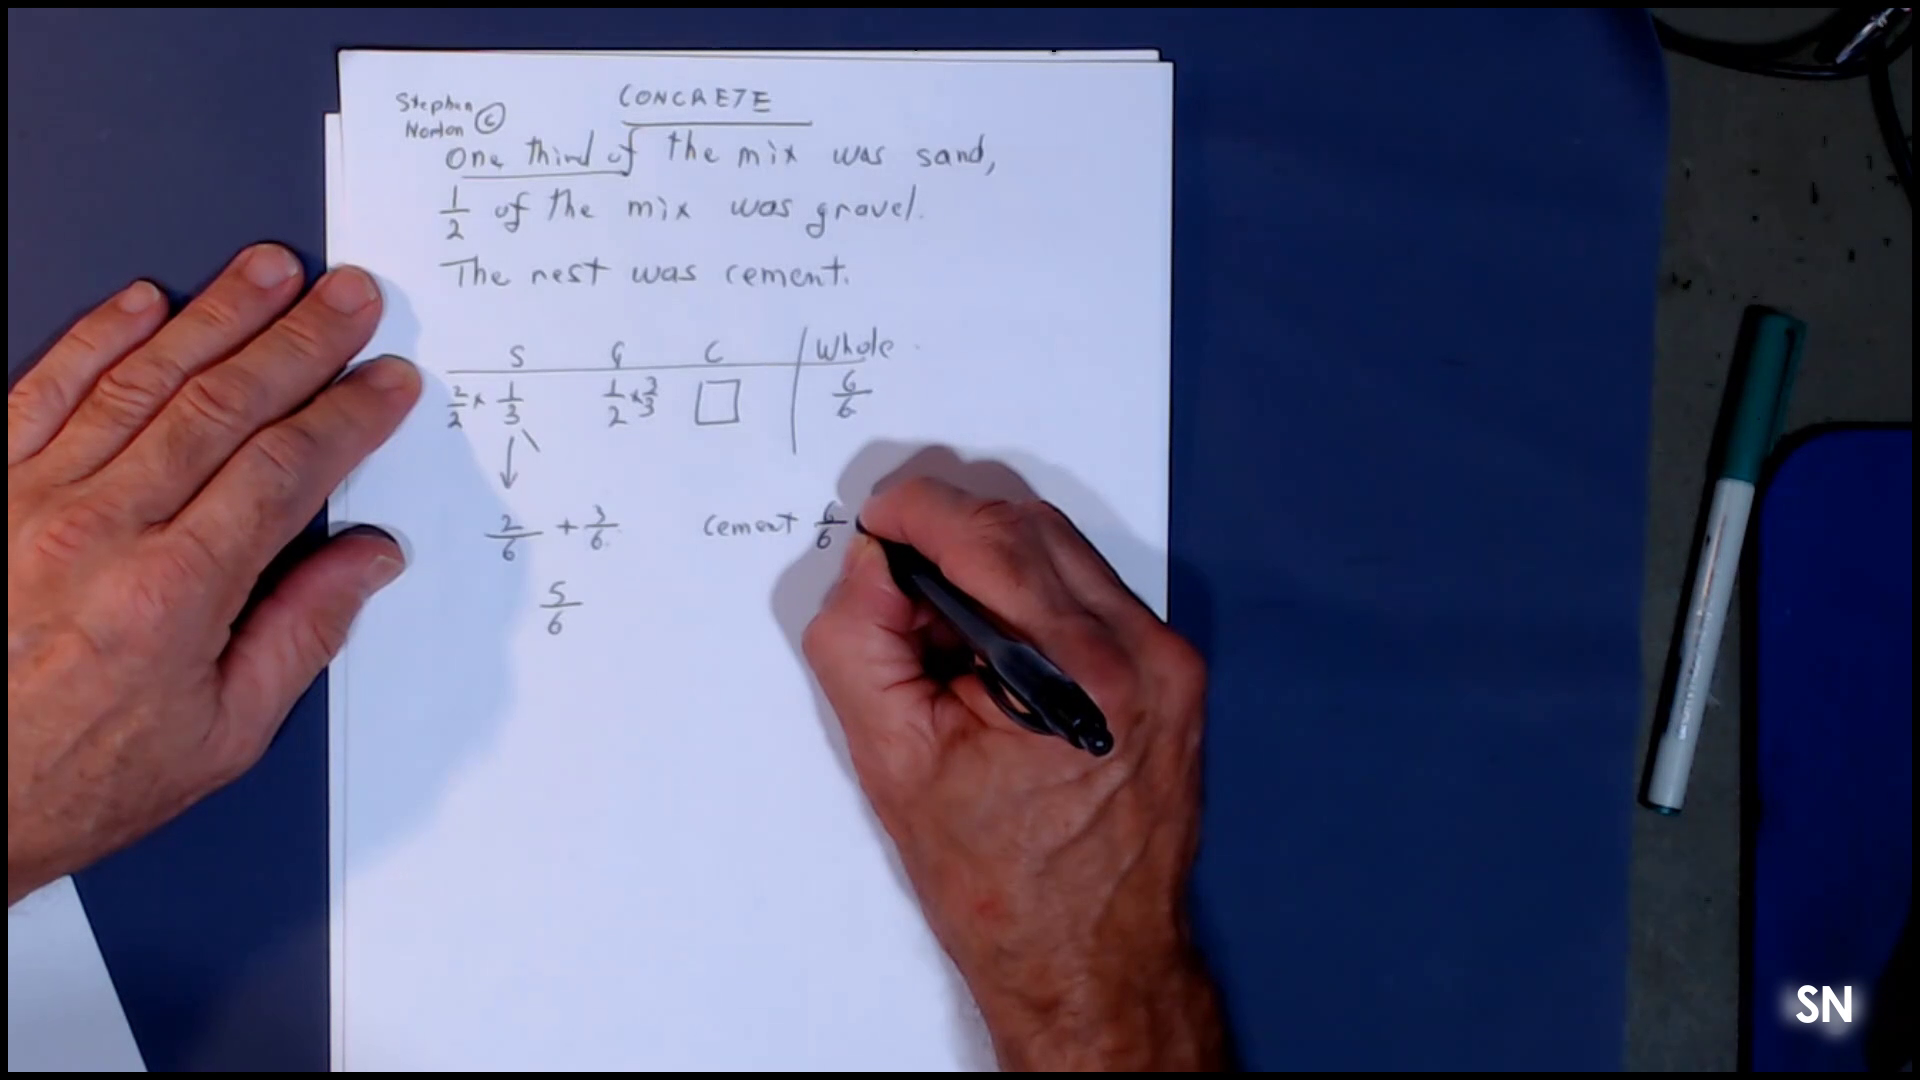 Stephen
Norton ©
CONCRETE
One third of the mix was sand,
1/2 of the mix was gravel.
The rest was cement.
S G C Whole
2/2 × 1/3 1/2 × 3/3 □ 6/6
2/6 + 3/6 cement 6/6
5/6
SN